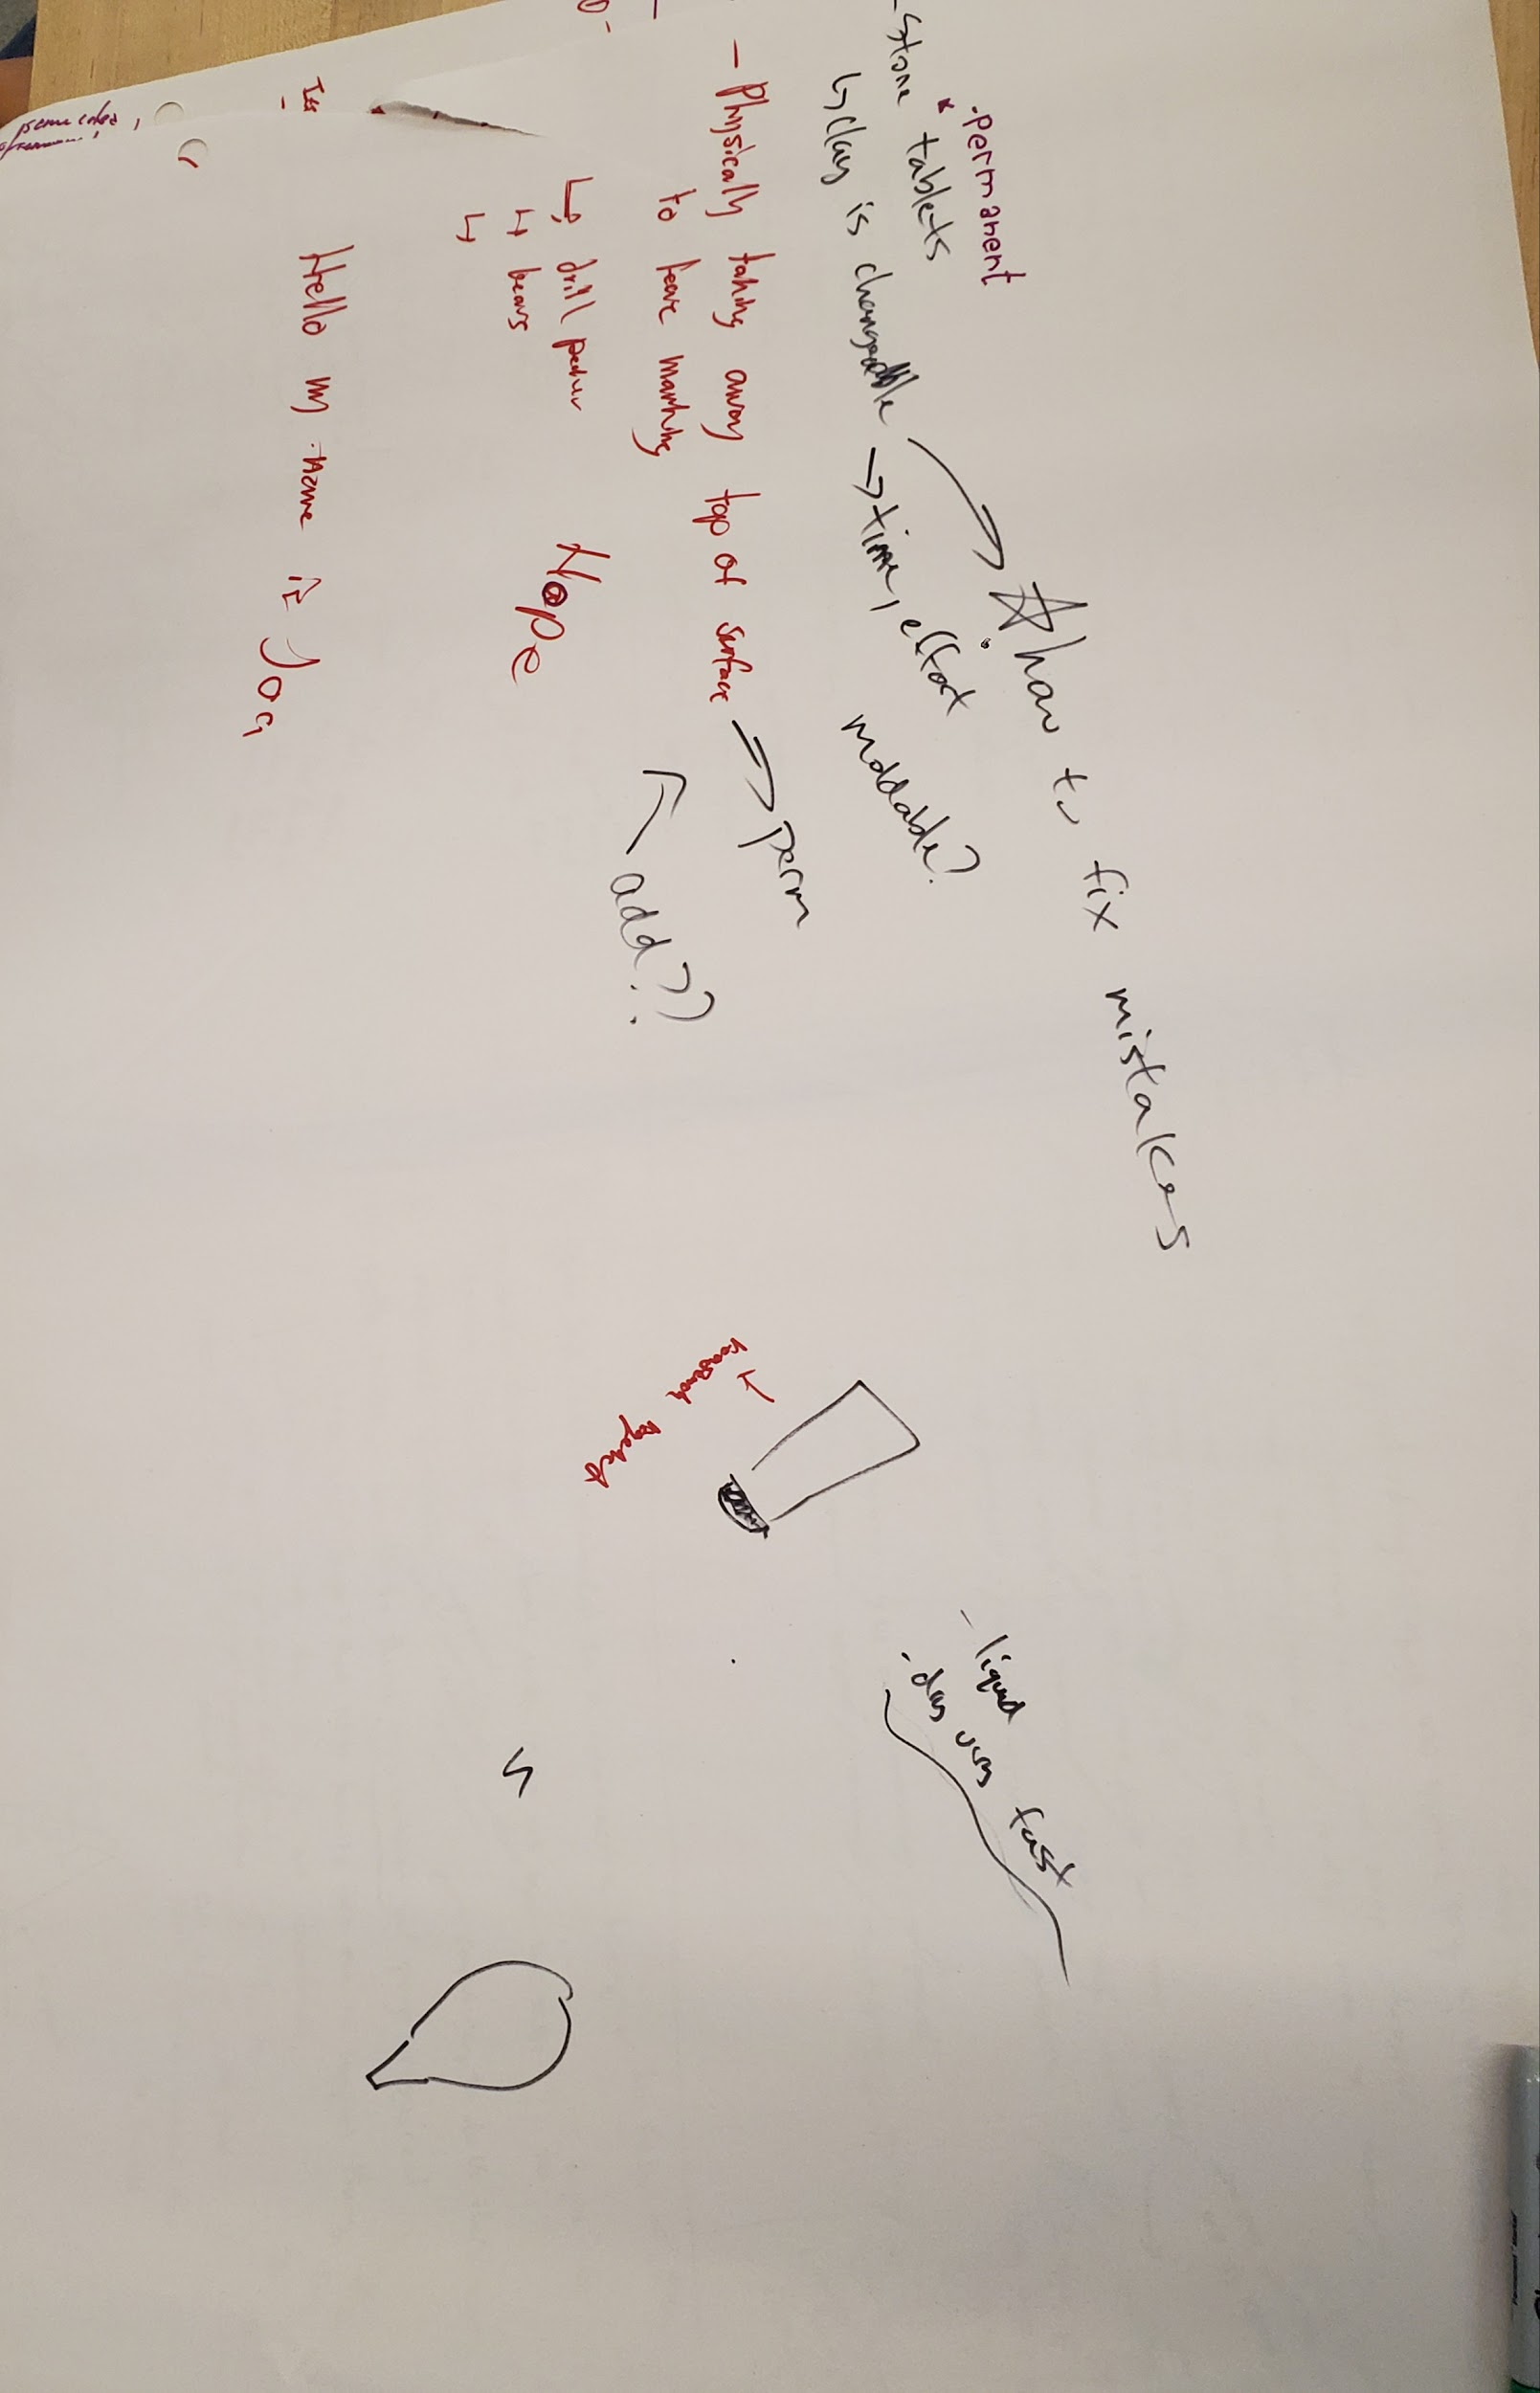 -permanent
-Stone tablets
↳ clay is changeable → time, effort
☆ how to fix mistakes
moldable?
- Physically taking away top of surface → perm
to leave marking
↳ drill
↳ bears
↳
add??
Hope
Hello my name is
- liquid
- dries very fast